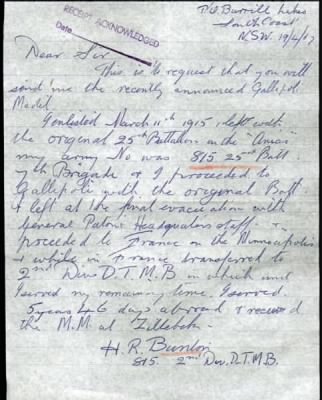 RECEIPT ACKNOWLEDGED
Date
P.O. Burrill Lake
South Coast
N.S.W. 19/4/67
Dear Sir
This is to request that you will
send me the recently announced Gallipoli
Medal
I enlisted March 11th 1915, left with
the original 25th Battalion in the "Aeneas"
my army No was 815 25th Batt
7th Brigade & I proceeded to
Gallipoli with the original Batt
& left at the final evacuation with
General Patons Headquaters staff &
proceeded to France on the Minneapolis
& while in France transfered to
2nd Div D.T.M.B in which unit
I served my remaining time. I served
5 years 46 days abroad & received
the M.M. at Zillebeke
H. R. Bunton
815 2nd Div. D.T.M.B.